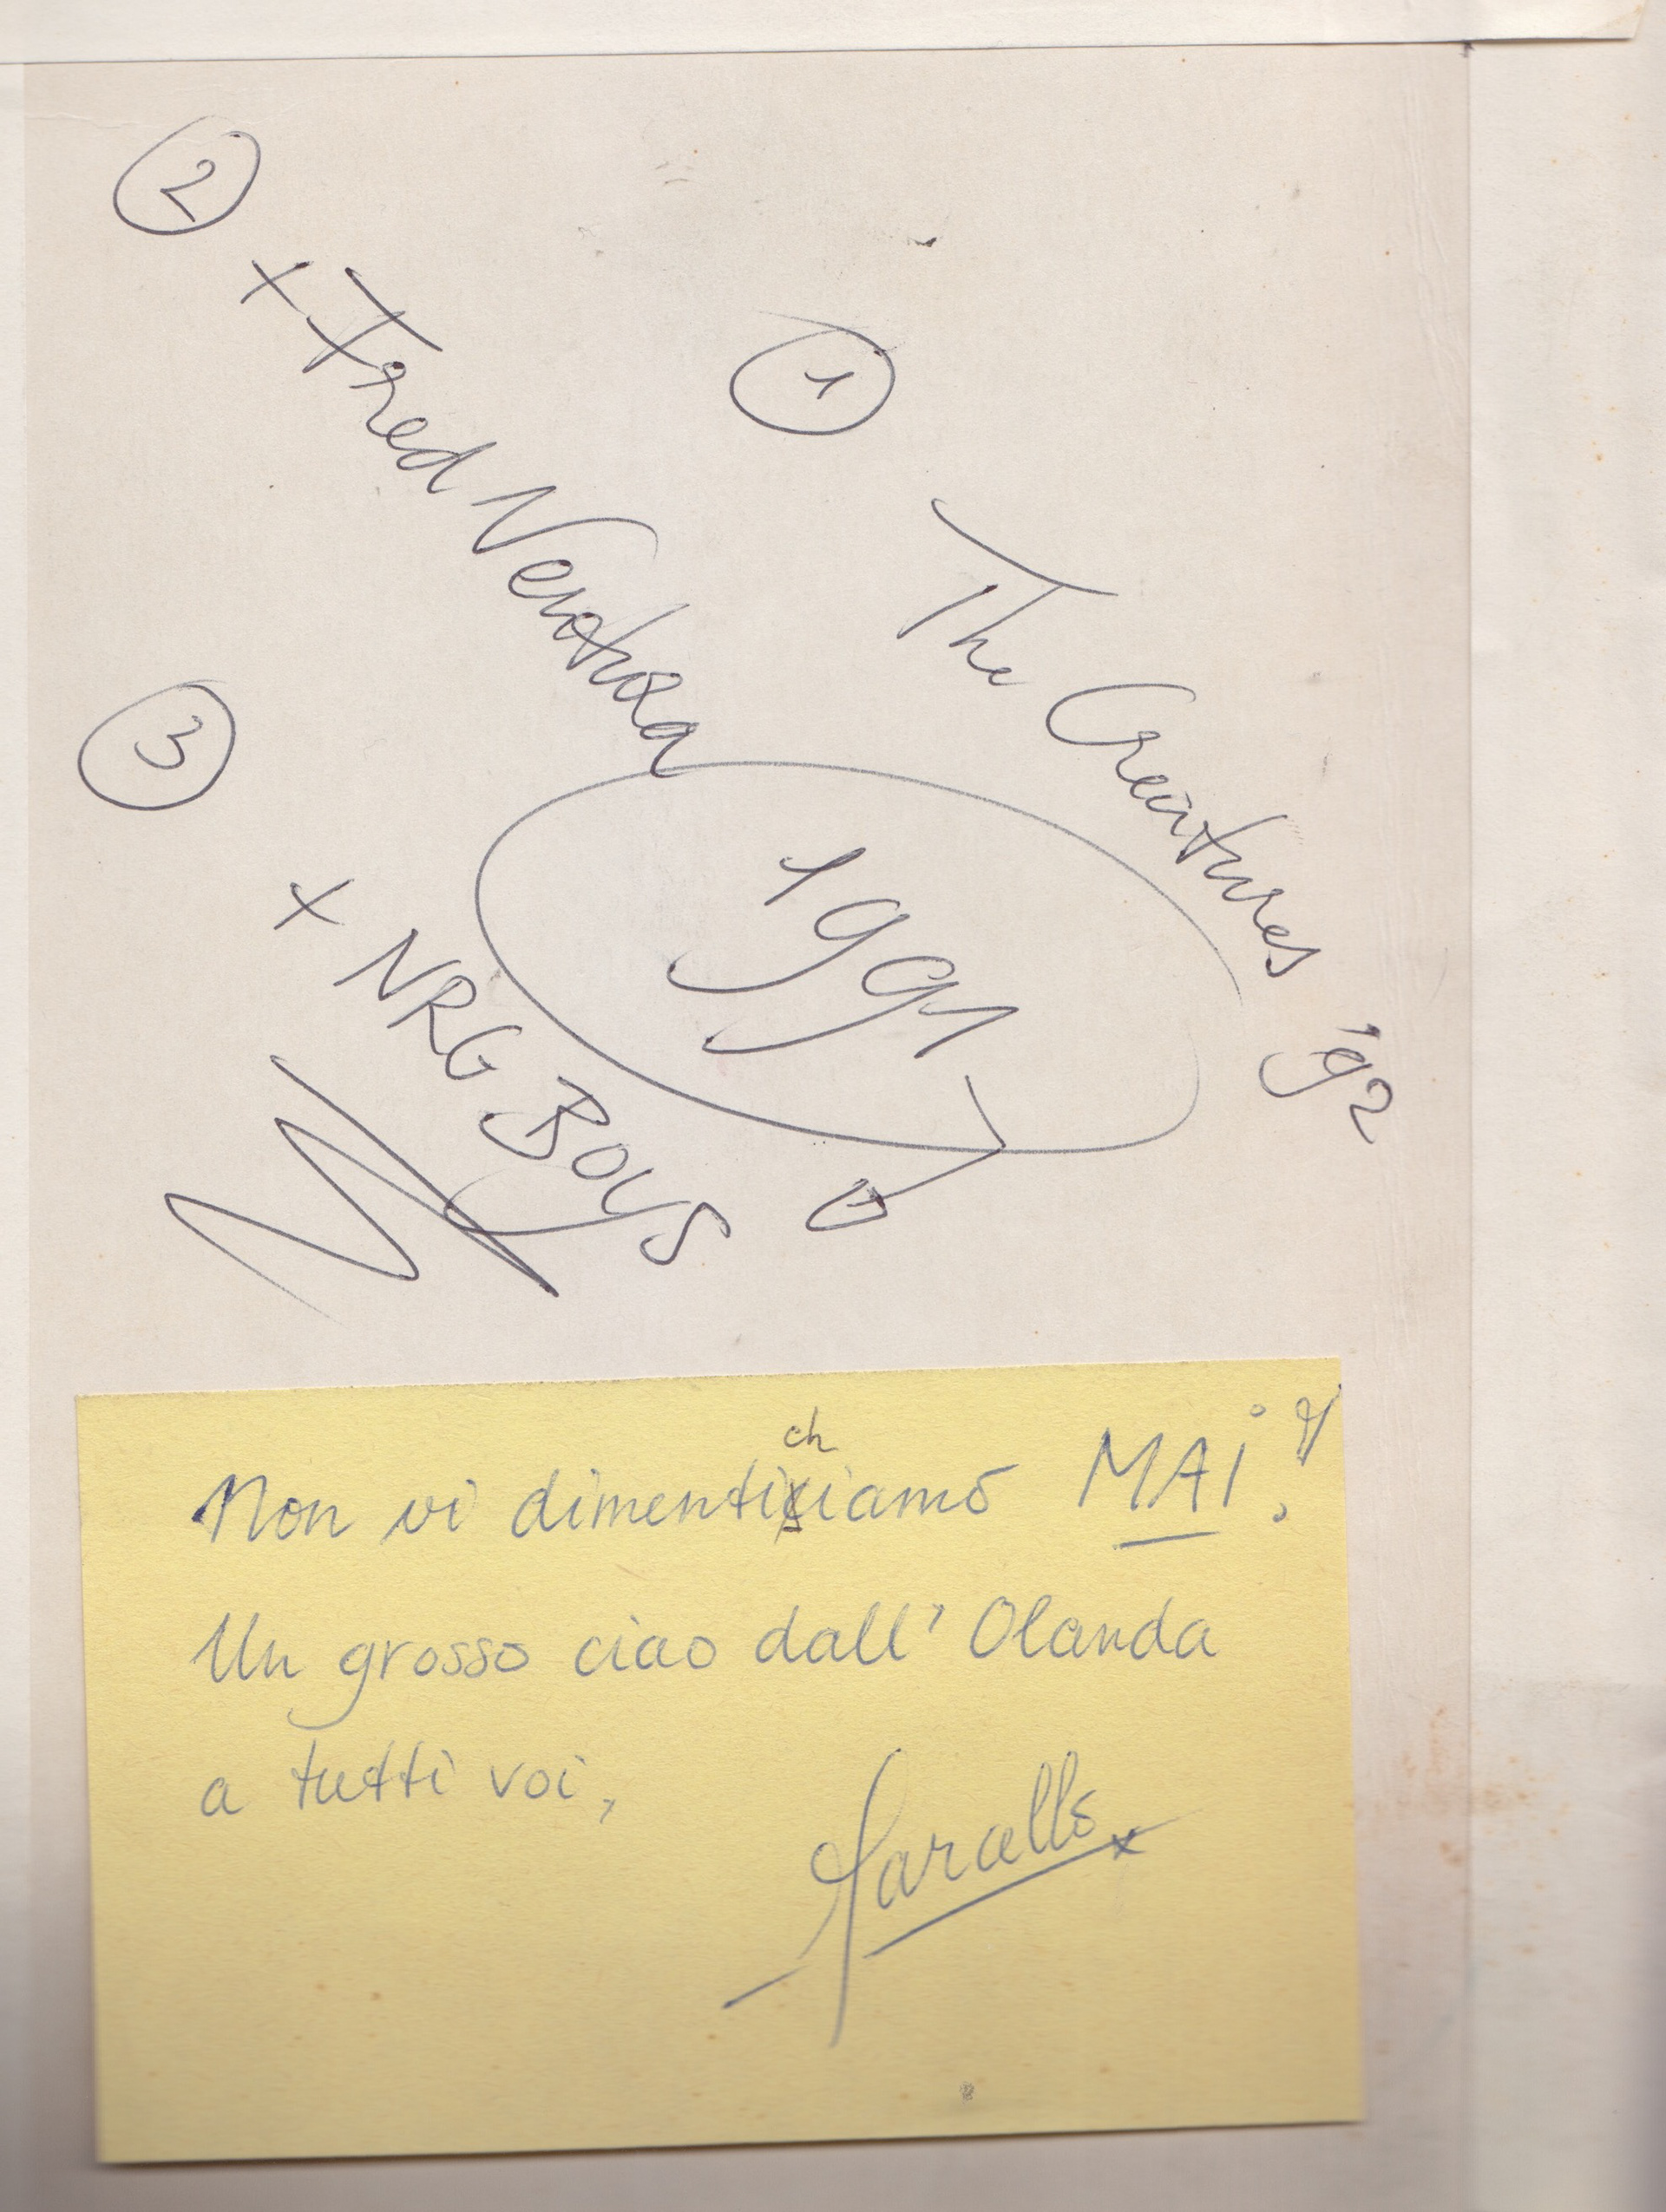 ①
The Creatures '92
②
+ Fred Ventura
③
+ NRG Boys
1991
Non vi dimentichiamo MAI!
Un grosso ciao dall'Olanda
a tutti voi,
Marcello